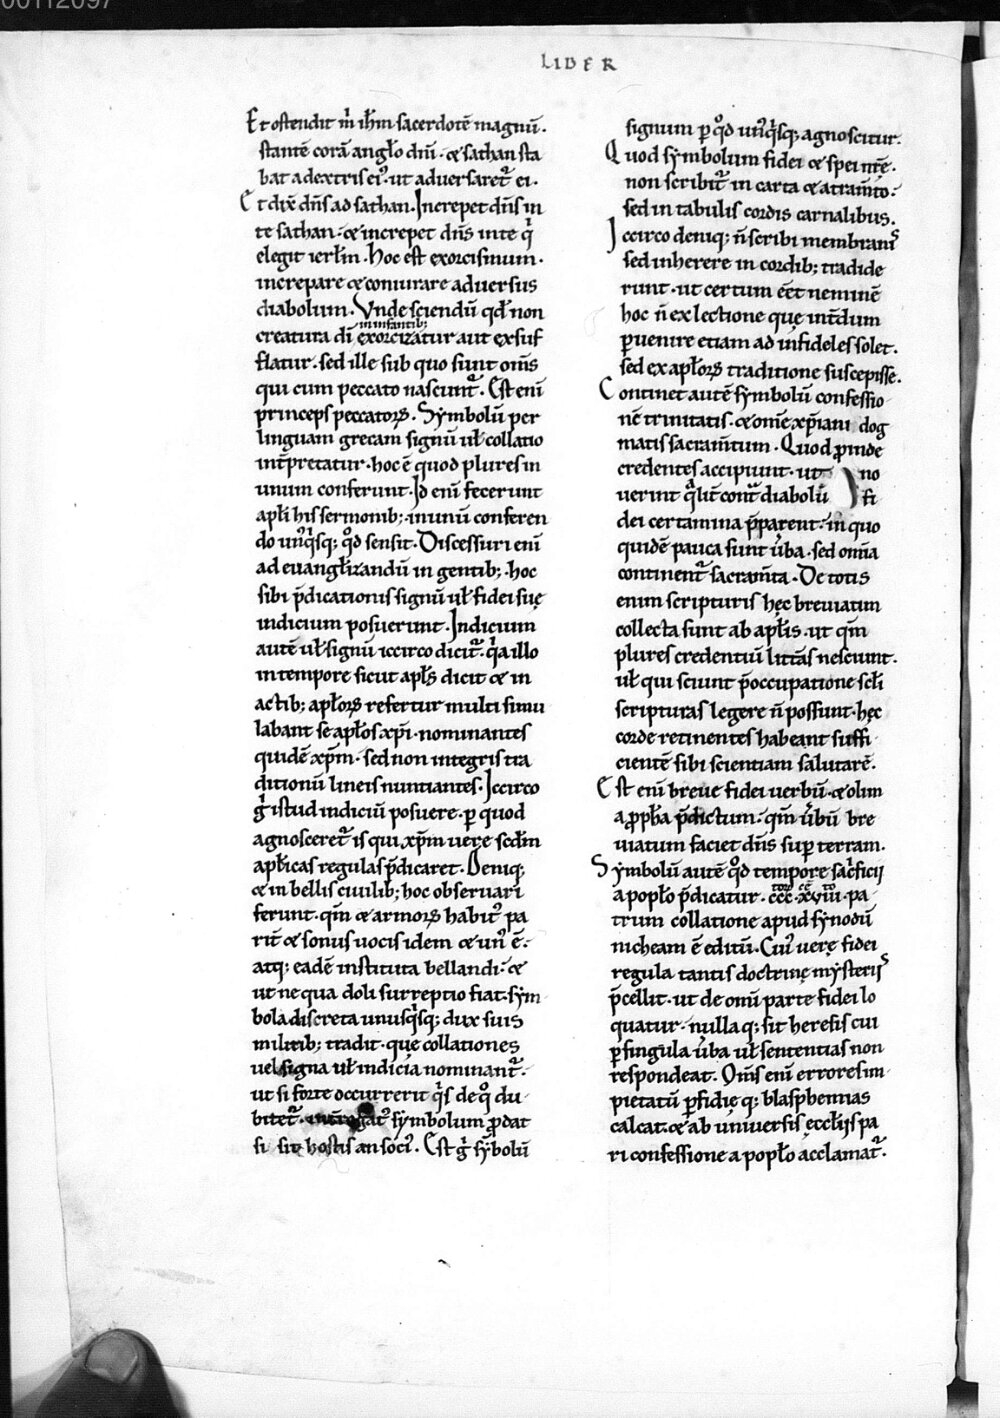 00112097
LIBER
Et ostendit m̅ ih̅m sacerdotē magnū.
stantē corā angl̅o dn̅i. & sathan sta
bat a dextris ei᷒. ut adversaret᷒ ei.
Et dix̅ dn̅s ad sathan. Increpet dn̅s in
te sathan. & increpet dn̅s in te qͥ
elegit ierl̅m. Hoc est exorcismum.
increpare & coniurare adversus
diabolum. Unde sciendū qd̅ non
in infantib;
creatura di̅ exorcizatur aut exsuf
flatur. sed ille sub quo sunt om̅s
qui cum peccato nascunt᷒. Est eni̅
princeps peccatoꝝ. Symbolū per
linguam grecam signū ul̅ collatio
int̅pretatur. hoc ē quod plures in
unum conferunt. Id eni̅ fecerunt
apl̅i his sermonib; in unū conferen
do un᷒qͥsq; qͦd sensit. Discessuri eni̅
ad euangl̅izandū in gentib;. hoc
sibi p̅dicationis signū ul̅ fidei suę
indicium posuerunt. Indicium
autē ul̅ signū iccirco dicit᷒. qͥa illo
in tempore sicut apl̅s dicit & in
actib; apl̅oꝝ refertur multi simu
labant se apl̅os xp̅i. nominantes
quidē xp̅m. sed non integris tra
ditionū lineis nuntiantes. Iccirco
gͥ istud indiciū posuere. ꝑ quod
agnosceret᷒ is qui xp̅m vere scd̅m
apl̅icas regulas p̅dicaret. Deniq;
& in bellis civilib; hoc observari
ferunt. qm̅ & armoꝝ habit᷒ pa
rit̅ & sonus vocis idem & un᷒ ē.
atq; eadē instituta bellandi. &
ut ne qua doli surreptio fiat. sym
bola discreta unusqͥsq; dux suis
militib; tradit. que collationes
vel signa ul̅ indicia nominant᷒.
ut si forte occurrerit qͥs de qͦ du
bitet᷒. interrogat᷒ symbolum ꝓdat
si sit hostis an soci᷒. Est gͥ sy̅bolū
signum ꝑ qͦd un᷒qͥsq; agnoscitur.
Quod symbolum fidei & spei nr̅e.
non scribit᷒ in carta & atram̅to.
sed in tabulis cordis carnalibus.
Iccirco deniq; n̅ scribi membranis
sed inherere in cordib; tradide
runt. ut certum eēt neminē
hoc n̅ ex lectione quę int̅dum
ꝑvenire etiam ad infideles solet.
sed ex apl̅oꝝ traditione suscepisse.
Continet autē symbolū confessio
nē trinitatis. & omē xp̅iani dog
matis sacram̅tum. Quod ꝓinde
credentes accipiunt. ut no
verint qͣlit̅ cont̅ diabolū fi
dei certamina p̅parent. in quo
quidē pauca sunt v̅ba. sed omīa
continent᷒ sacram̅ta. De totis
enim scripturis hęc breviatim
collecta sunt ab apl̅is. ut qm̅
plures credentiū litt̅as nesciunt.
ul̅ qui sciunt p̅occupatione scl̅i
scripturas legere n̅ possunt. hęc
corde retinentes habeant suffi
cientē sibi scientiam salutarē.
Est eni̅ breve fidei verbū. & olim
a ꝓph̅a p̅dictum. qm̅ v̅bū bre
viatum faciet dn̅s suꝑ terram.
Symbolū autē qͦd tempore sacͥficij
a popl̅o p̅dicatur. ccc. xviii. pa
trum collatione apud synodū
niceam ē editū. Cui᷒ verę fidei
regula tantis doctrinę mysteriis
p̅cellit. ut de omi̅ parte fidei lo
quatur. nullaq; sit heresis cui
ꝑ singula v̅ba ul̅ sententias non
respondeat. Om̅s eni̅ errores im
pietatū ꝑfidieq; blasphemias
calcat. & ab universis ęccl̅ijs pa
ri confessione a popl̅o acclamat᷒.